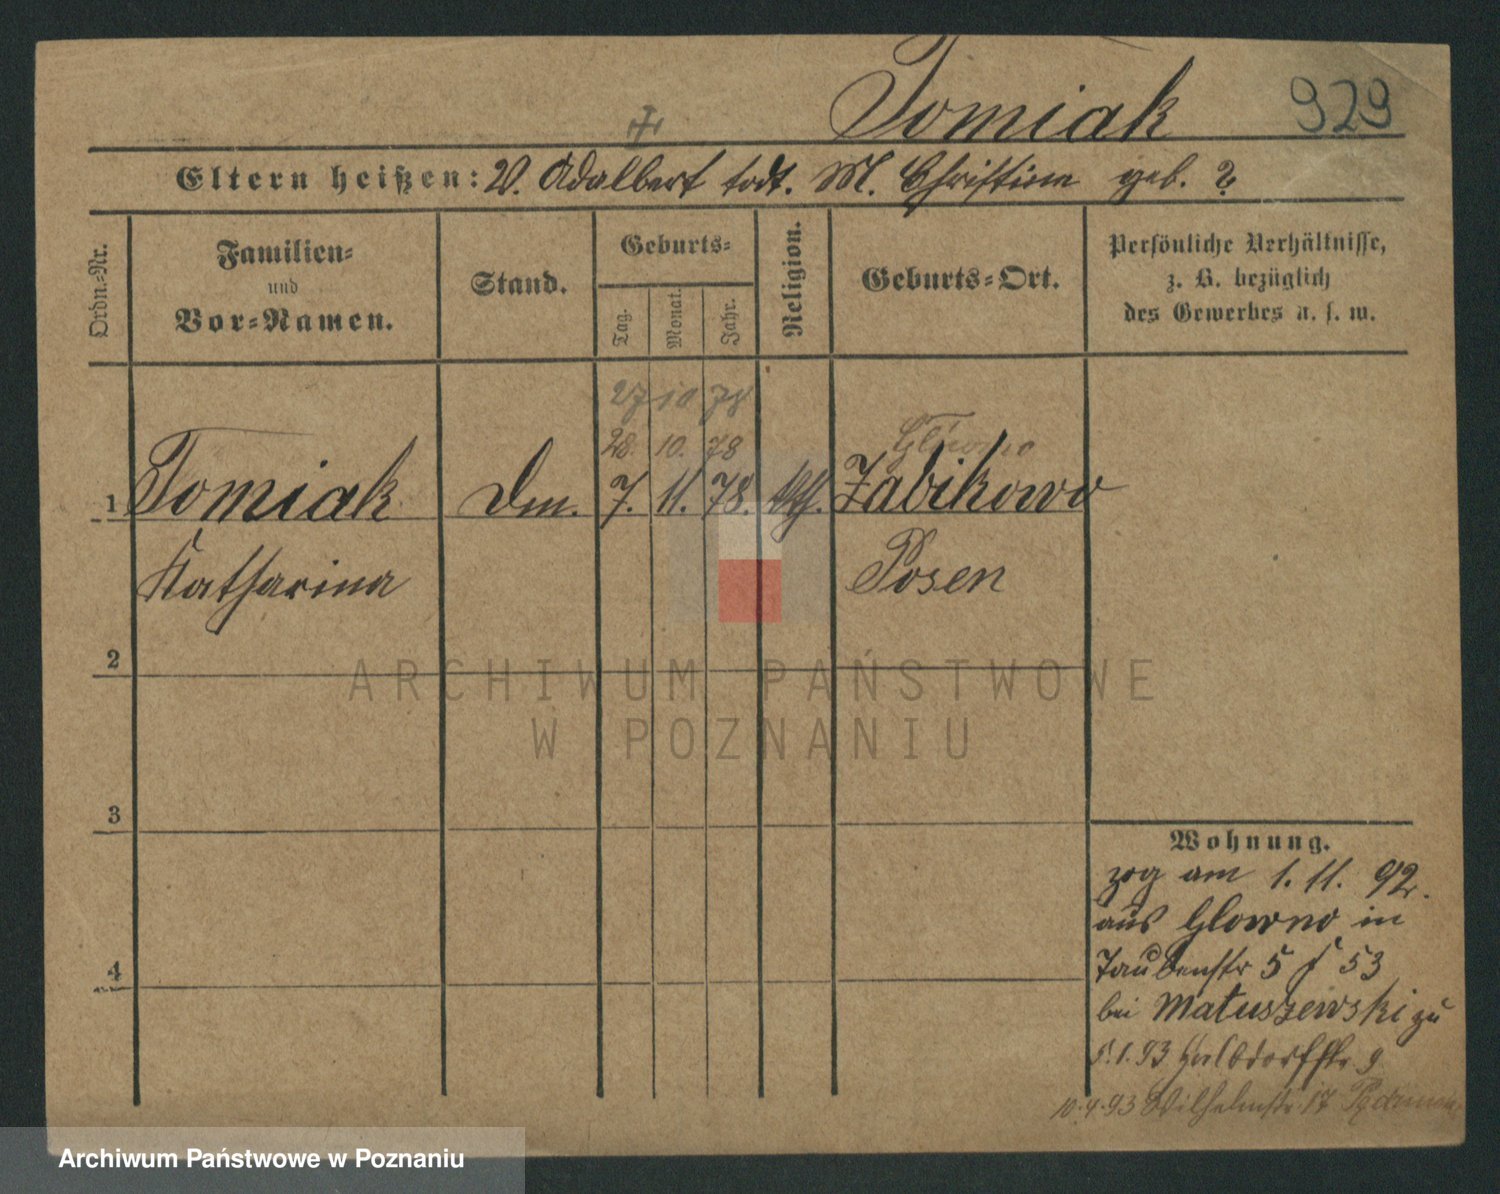 Tomiak 929
Eltern heißen: V. Adalbert todt. M. Christine geb. ?
Ordn.-Nr.
Familien-
und
Vor-Namen.
Stand.
Geburts-
Tag.
Monat.
Jahr.
Religion.
Geburts-Ort.
Persönliche Verhältnisse,
z. B. bezüglich
des Gewerbes u. s. w.
27 10 78
28. 10. 78 Glowno
1 Tomiak Dm. 7. 11. 78. kth. Zabikowo
Katharina Posen
2
ARCHIWUM PAŃSTWOWE
W POZNANIU
3
4
Wohnung.
zog am 1. 11. 92.
aus Glowno in
Taubenstr 5 53
bei Matuszewski zu
5.1.93 Halbdorfstr 9
10.4.93 Wilhelmstr 17
Archiwum Państwowe w Poznaniu